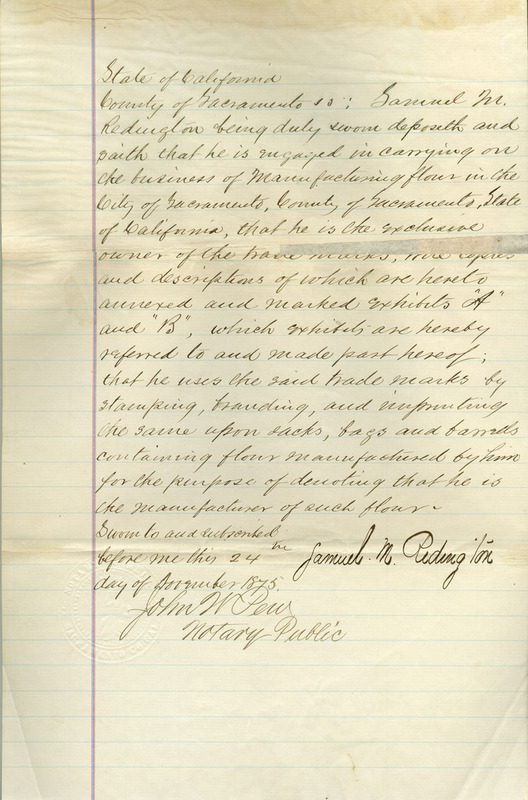 State of California
County of Sacramento ss; Samuel M.
Redington being duly sworn deposeth and
saith that he is engaged in carrying on
the business of Manufacturing flour in the
City of Sacramento, County of Sacramento, State
of California, that he is the exclusive
owner of the trade marks, two copies
and descriptions of which are hereto
annexed and marked exhibits "A"
and "B", which exhibits are hereby
referred to and made part hereof;
that he uses the said trade marks by
stamping, branding, and imprinting
the same upon sacks, bags and barrells
containing flour manufactured by him
for the purpose of denoting that he is
the manufacturer of such flour.
Sworn to and subscribed
before me this 24th Samuel M. Redington
day of November 1875.
John W
Notary Public